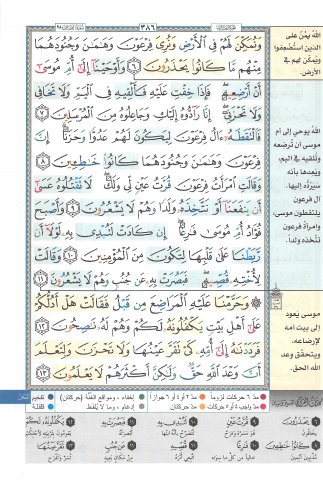 وَنُمَكِّنَ لَهُمْ فِي الْأَرْضِ وَنُرِيَ فِرْعَوْنَ وَهَامَانَ وَجُنُودَهُمَا
مِنْهُم مَّا كَانُوا يَحْذَرُونَ ۝٦ وَأَوْحَيْنَا إِلَىٰ أُمِّ مُوسَىٰ
أَنْ أَرْضِعِيهِ فَإِذَا خِفْتِ عَلَيْهِ فَأَلْقِيهِ فِي الْيَمِّ وَلَا تَخَافِي
وَلَا تَحْزَنِي إِنَّا رَادُّوهُ إِلَيْكِ وَجَاعِلُوهُ مِنَ الْمُرْسَلِينَ ۝٧
فَالْتَقَطَهُ آلُ فِرْعَوْنَ لِيَكُونَ لَهُمْ عَدُوًّا وَحَزَنًا إِنَّ
فِرْعَوْنَ وَهَامَانَ وَجُنُودَهُمَا كَانُوا خَاطِئِينَ ۝٨
وَقَالَتِ امْرَأَتُ فِرْعَوْنَ قُرَّتُ عَيْنٍ لِّي وَلَكَ لَا تَقْتُلُوهُ عَسَىٰ
أَن يَنفَعَنَا أَوْ نَتَّخِذَهُ وَلَدًا وَهُمْ لَا يَشْعُرُونَ ۝٩ وَأَصْبَحَ
فُؤَادُ أُمِّ مُوسَىٰ فَارِغًا إِن كَادَتْ لَتُبْدِي بِهِ لَوْلَا أَن
رَّبَطْنَا عَلَىٰ قَلْبِهَا لِتَكُونَ مِنَ الْمُؤْمِنِينَ ۝١٠ وَقَالَتْ
لِأُخْتِهِ قُصِّيهِ فَبَصُرَتْ بِهِ عَن جُنُبٍ وَهُمْ لَا يَشْعُرُونَ ۝١١
۞ وَحَرَّمْنَا عَلَيْهِ الْمَرَاضِعَ مِن قَبْلُ فَقَالَتْ هَلْ أَدُلُّكُمْ
عَلَىٰ أَهْلِ بَيْتٍ يَكْفُلُونَهُ لَكُمْ وَهُمْ لَهُ نَاصِحُونَ ۝١٢
فَرَدَدْنَاهُ إِلَىٰ أُمِّهِ كَيْ تَقَرَّ عَيْنُهَا وَلَا تَحْزَنَ وَلِتَعْلَمَ
أَنَّ وَعْدَ اللَّهِ حَقٌّ وَلَٰكِنَّ أَكْثَرَهُمْ لَا يَعْلَمُونَ ۝١٣
الله يمُنّ على
الذين استُضعِفوا
ويُمكّن لهم في
الأرض.
الله يوحي إلى أم
موسى أن تُرضعه
وتُلقيه في اليم،
ويعدها بأنه
سيَرُدّه إليها.
آل فرعون
يلتقطون موسى،
وامرأة فرعون
تتخذه ولداً.
موسى يعود
إلى بيت أمه
لإرضاعه،
ويتحقق وعد
الله الحق.
٣٨٦
مد ٦ حركات لزوماً
مد ٢ أو ٤ أو ٦ جوازاً
إخفاء، ومواقع الغُنَّة (حركتان)
تفخيم
مد واجب ٤ أو ٥ حركات
مد حركتان
إدغام، وما لا يُلفَظ
قلقلة